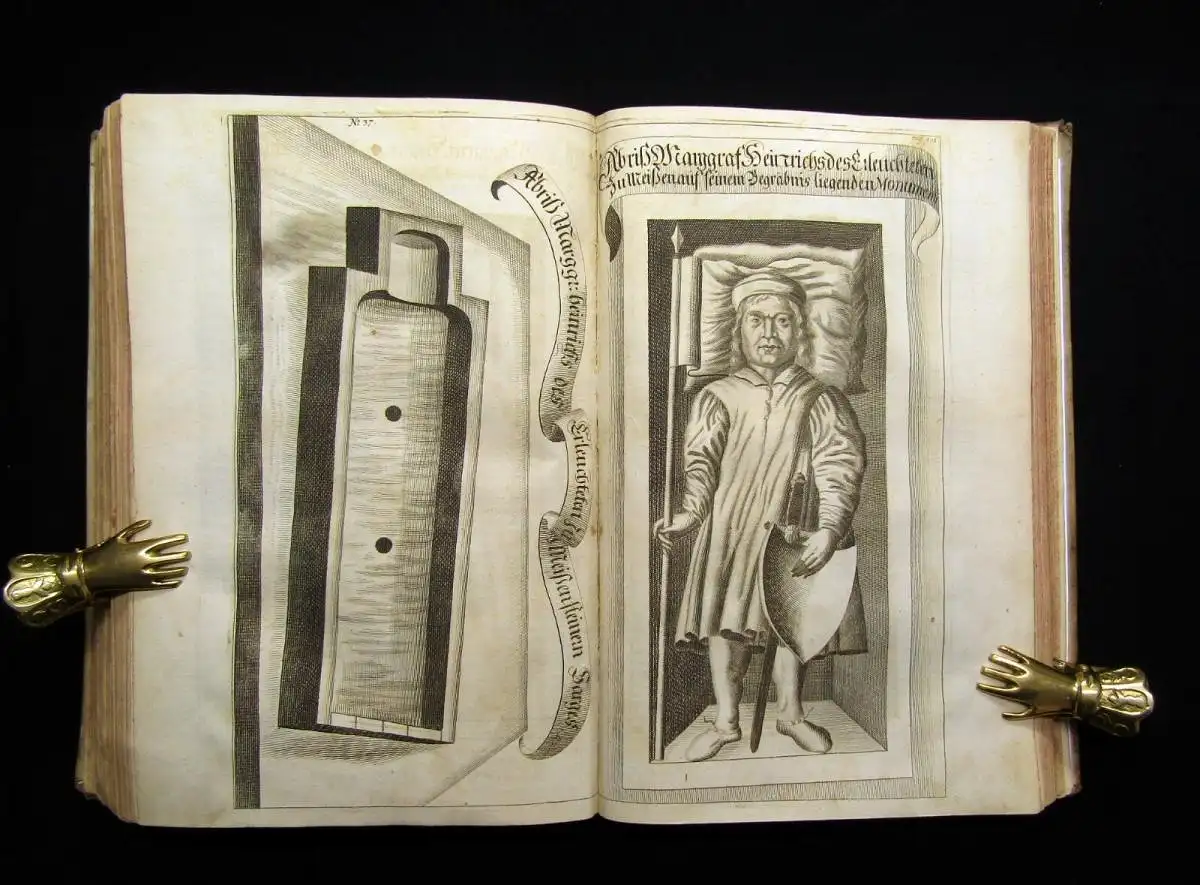 No 37.
Abriß Marggr: heinrichs des
Erleuchteten zu
Meißen steinern Sarges
Abriß Marggraf Heinrichs des Erleuchteten
Zu Meißen auf seinem Begräbnis liegenden Monument